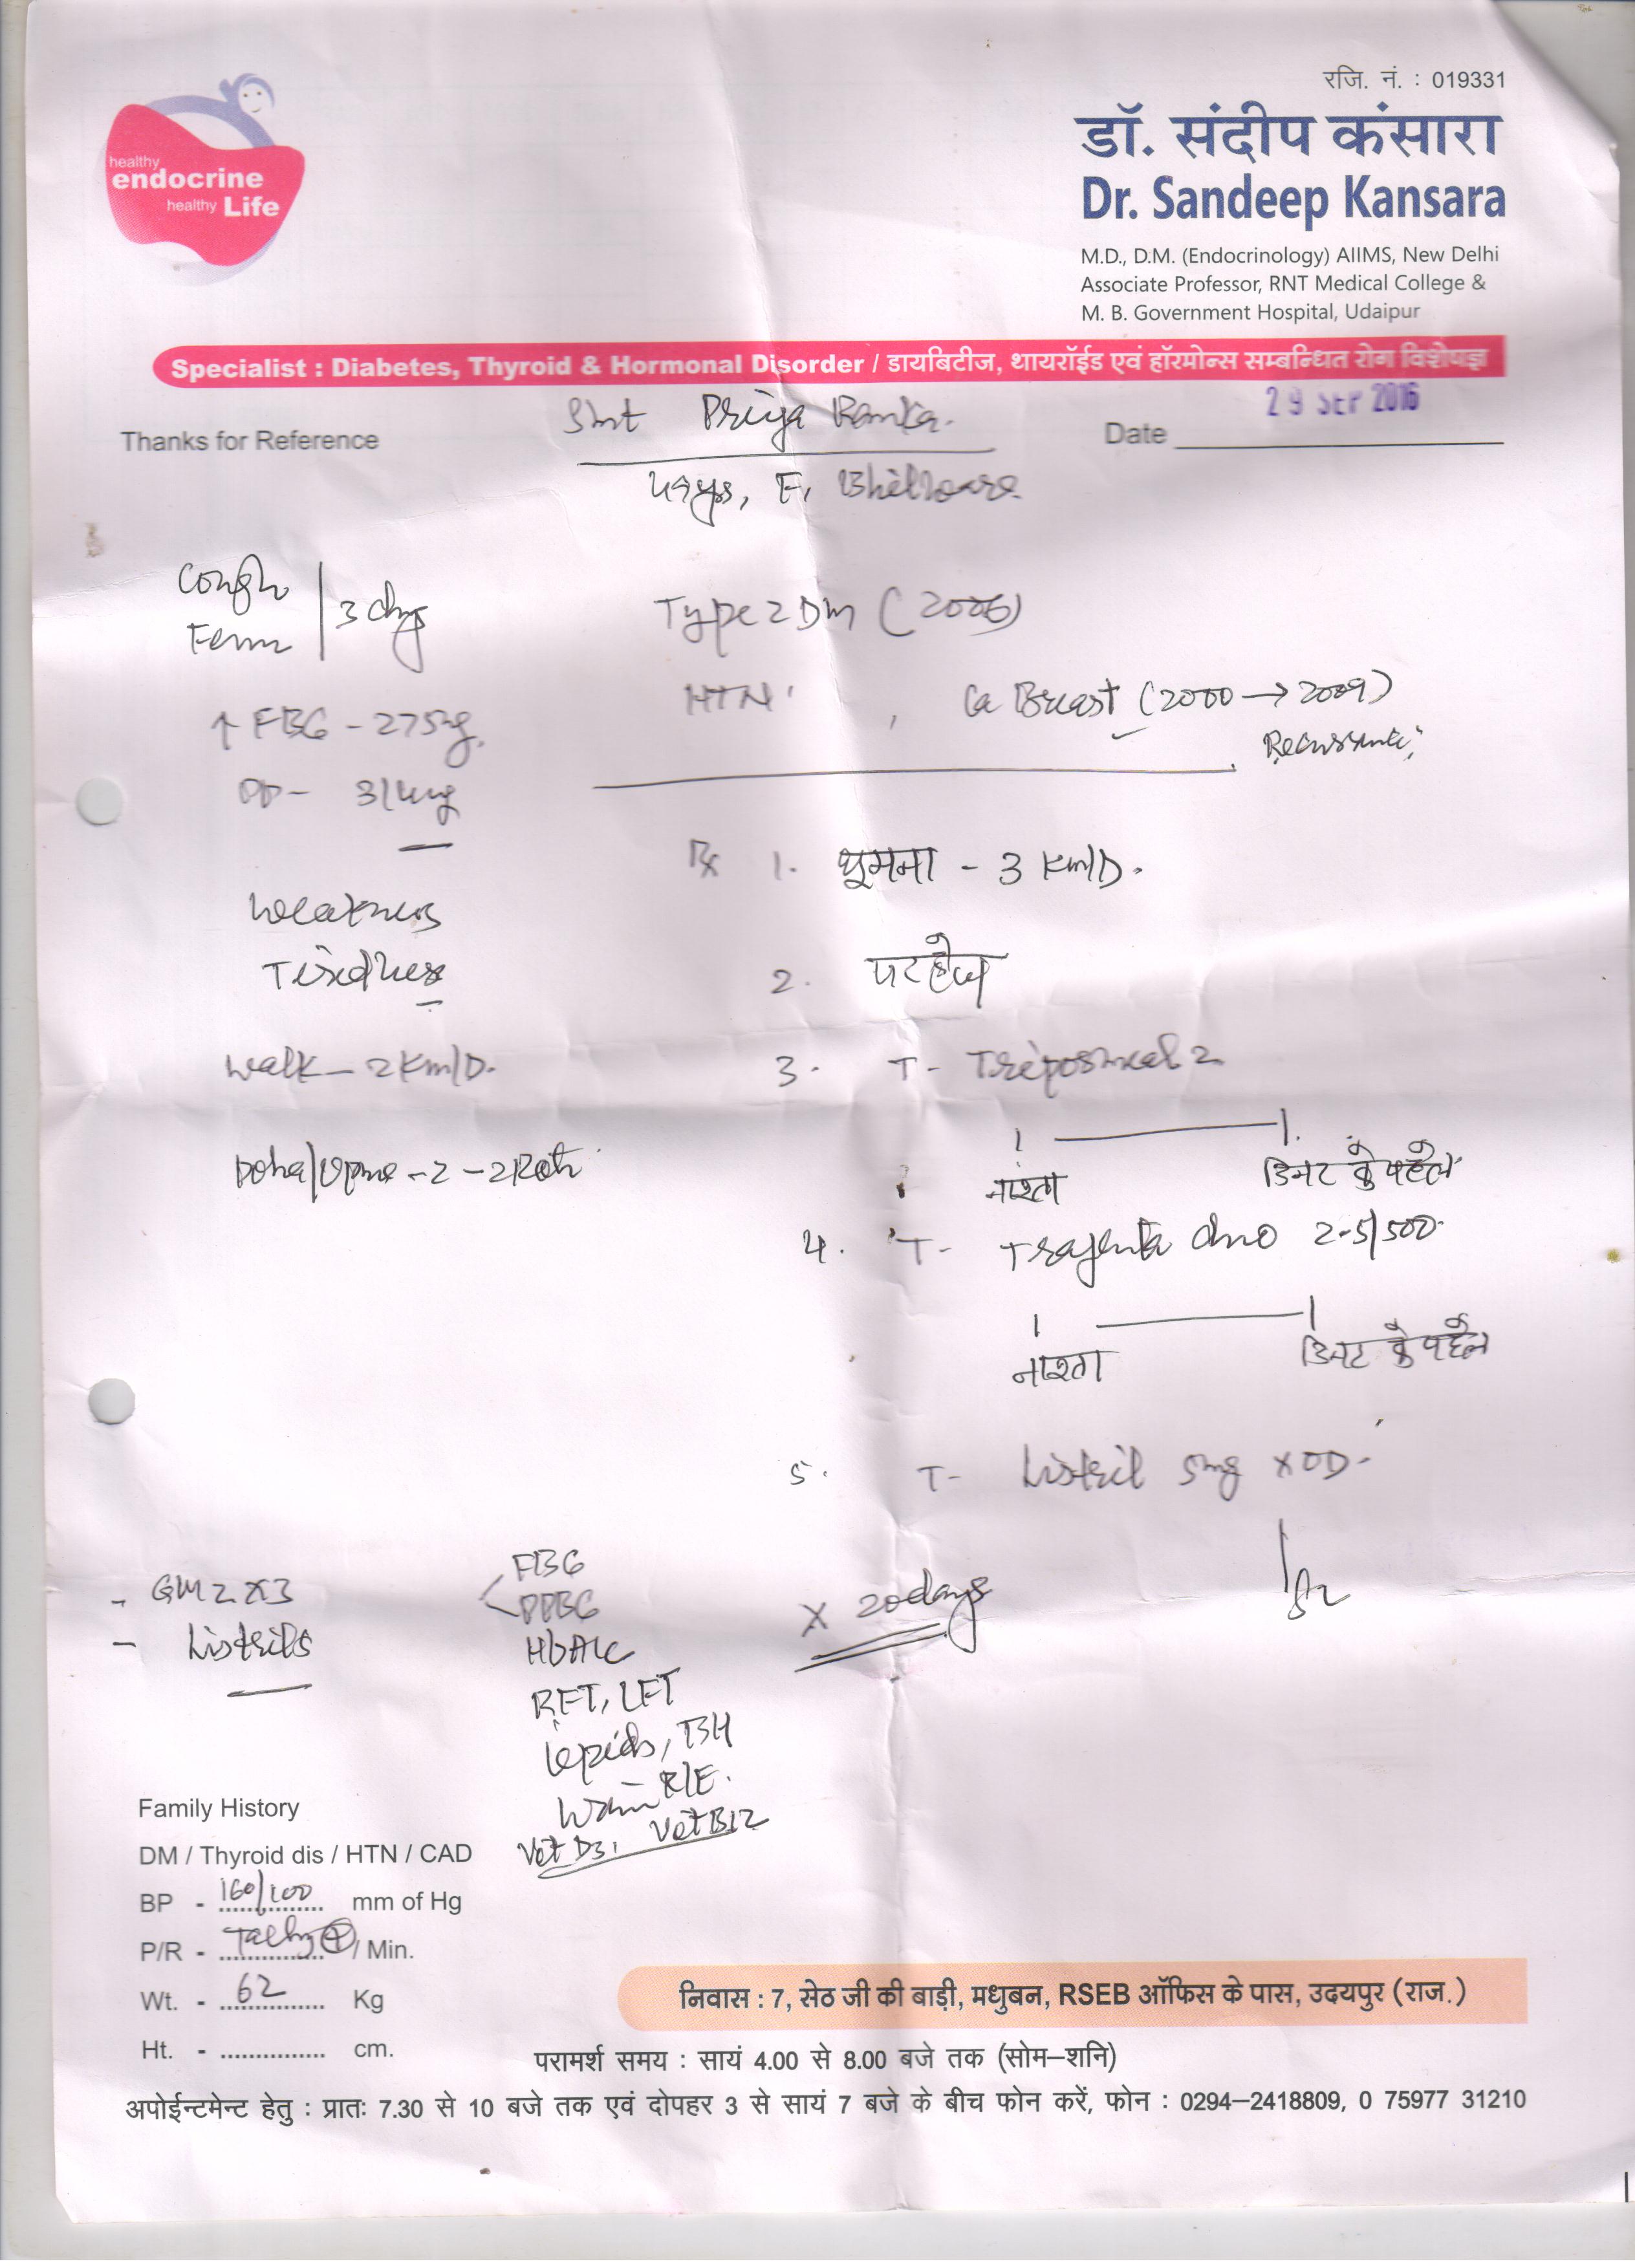 रजि. नं. : 019331
डॉ. संदीप कंसारा
Dr. Sandeep Kansara
M.D., D.M. (Endocrinology) AIIMS, New Delhi
Associate Professor, RNT Medical College &
M. B. Government Hospital, Udaipur
healthy
endocrine
healthy Life
Specialist : Diabetes, Thyroid & Hormonal Disorder / डायबिटीज, थायरॉईड एवं हॉरमोन्स सम्बन्धित रोग विशेषज्ञ
Thanks for Reference
Smt Priya
Date 29 SEP 2016
yrs, F,
Cough
3 days
Type 2 DM (2006)
HTN, Ca Breast (2000 → 2009)
↑ FBG - 275mg
PP -
Rx 1. घूमना - 3 Km/D.
Weakness
Tiredness
2. परहेज
Walk - 2 Km/D.
3. T-
नाश्ता डिनर के पहले
Poha/Upma - 2 -
4. T- Trajenta duo 2.5/500
नाश्ता डिनर के पहले
5. T- Listril 5mg x OD
- GM2 x 3
- Listril 5
FBG
PPBG
HbA1c
RFT, LFT
Lipids, TSH
R/E.
Vit D3, Vit B12
x 20 days
Family History
DM / Thyroid dis / HTN / CAD
BP - 160/100 mm of Hg
P/R - Tachy + / Min.
Wt. - 62 Kg
Ht. - ............... cm.
निवास : 7, सेठ जी की बाड़ी, मधुबन, RSEB ऑफिस के पास, उदयपुर (राज.)
परामर्श समय : सायं 4.00 से 8.00 बजे तक (सोम–शनि)
अपोईन्टमेन्ट हेतु : प्रातः 7.30 से 10 बजे तक एवं दोपहर 3 से सायं 7 बजे के बीच फोन करें, फोन : 0294–2418809, 0 75977 31210